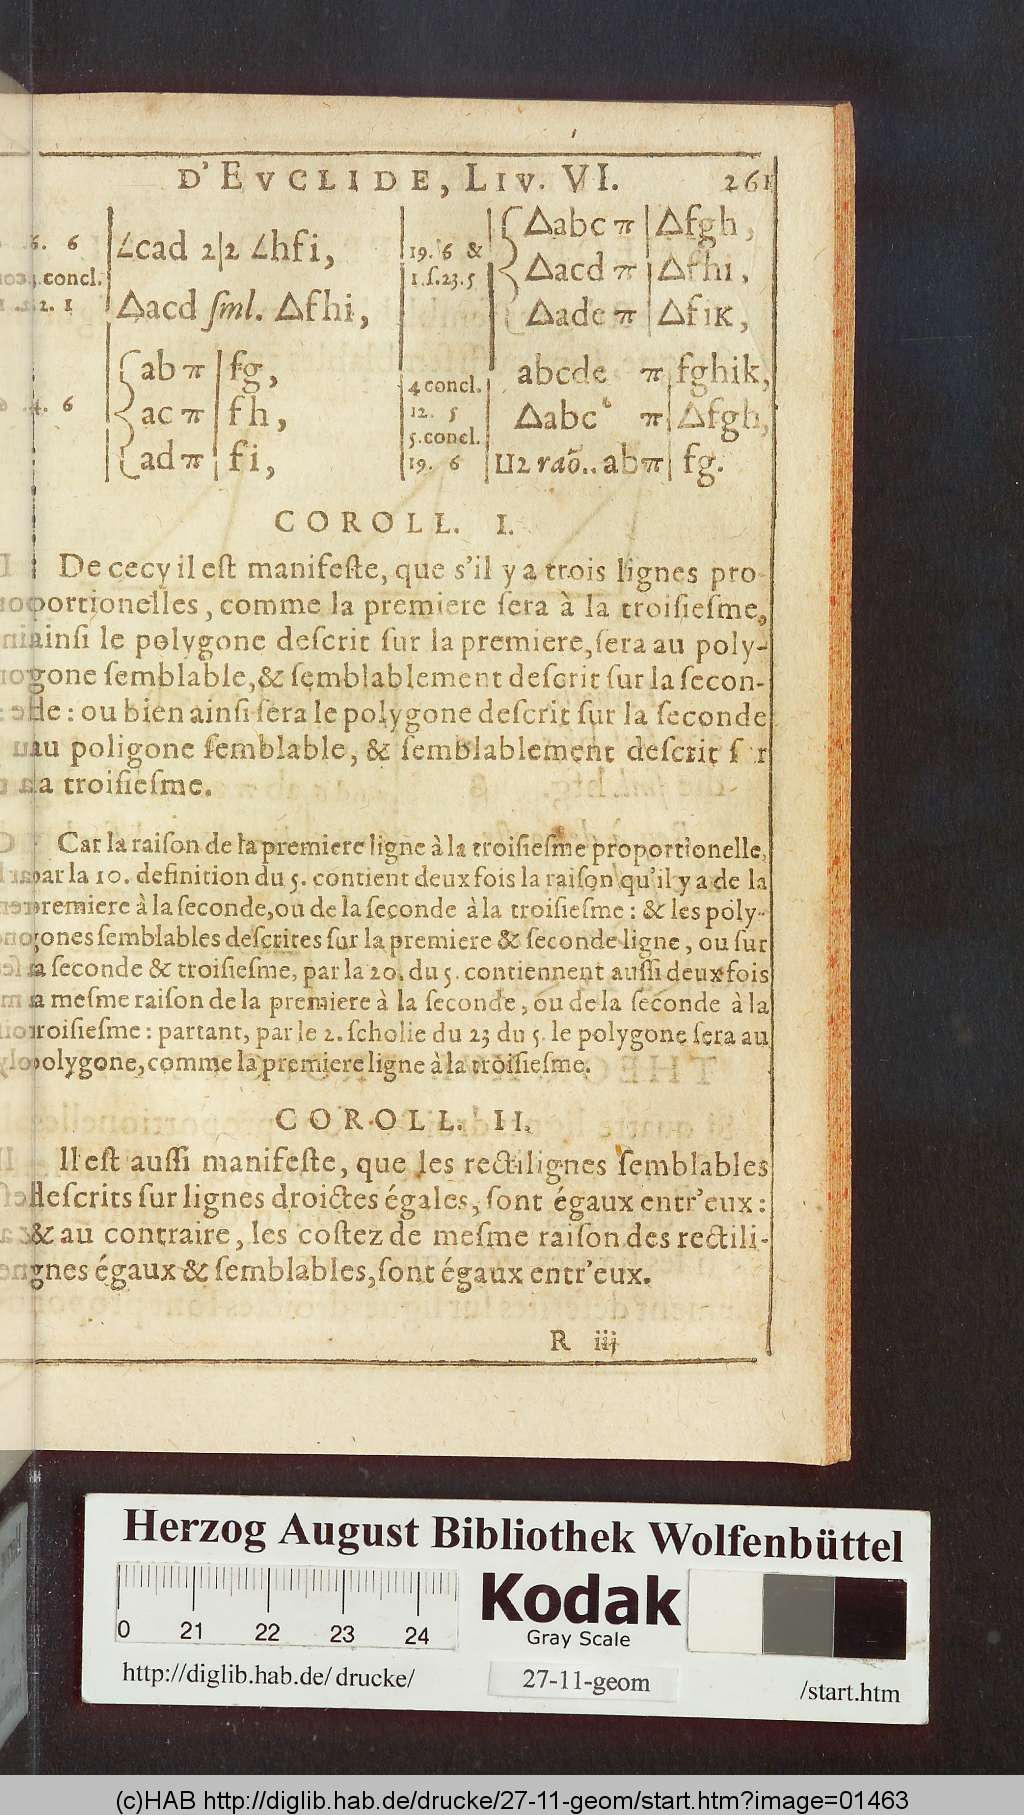 D'EVCLIDE, LIV. VI. 261
6. 6 ∠cad 2|2 ∠hfi,
concl.
2. 1 Δacd ſml. Δfhi,
ab π | fg,
.4. 6 ac π | fh,
ad π | fi,
19. 6 & Δabc π | Δfgh,
1.ſ.23.5 Δacd π | Δfhi,
Δade π | ΔfiK,
abcde π fghik,
4 concl.
12. 5 Δabc π Δfgh,
5.concl.
19. 6 ⊔2 raõ.. ab π fg.
COROLL. I.
De cecy il eſt manifeſte, que s'il y a trois lignes pro-
portionelles, comme la premiere ſera à la troiſieſme,
ainſi le polygone deſcrit ſur la premiere, ſera au poly-
gone ſemblable, & ſemblablement deſcrit ſur la ſecon-
de : ou bien ainſi ſera le polygone deſcrit ſur la ſeconde
au poligone ſemblable, & ſemblablement deſcrit ſ r
a troiſieſme.
Car la raiſon de la premiere ligne à la troiſieſme proportionelle,
par la 10. definition du 5. contient deux fois la raiſon qu'il y a de la
premiere à la ſeconde, ou de la ſeconde à la troiſieſme : & les poly-
gones ſemblables deſcrites ſur la premiere & ſeconde ligne, ou ſur
a ſeconde & troiſieſme, par la 20. du 5. contiennent auſſi deux fois
a meſme raiſon de la premiere à la ſeconde, ou de la ſeconde à la
troiſieſme : partant, par le 2. ſcholie du 23 du 5. le polygone ſera au
polygone, comme la premiere ligne à la troiſieſme.
COROLL. II.
Il eſt auſſi manifeſte, que les rectilignes ſemblables
deſcrits ſur lignes droictes égales, ſont égaux entr'eux :
& au contraire, les coſtez de meſme raiſon des rectili-
gnes égaux & ſemblables, ſont égaux entr'eux.
R iij
Herzog August Bibliothek Wolfenbüttel
0 21 22 23 24
Kodak
Gray Scale
http://diglib.hab.de/drucke/ 27-11-geom /start.htm
(c)HAB http://diglib.hab.de/drucke/27-11-geom/start.htm?image=01463